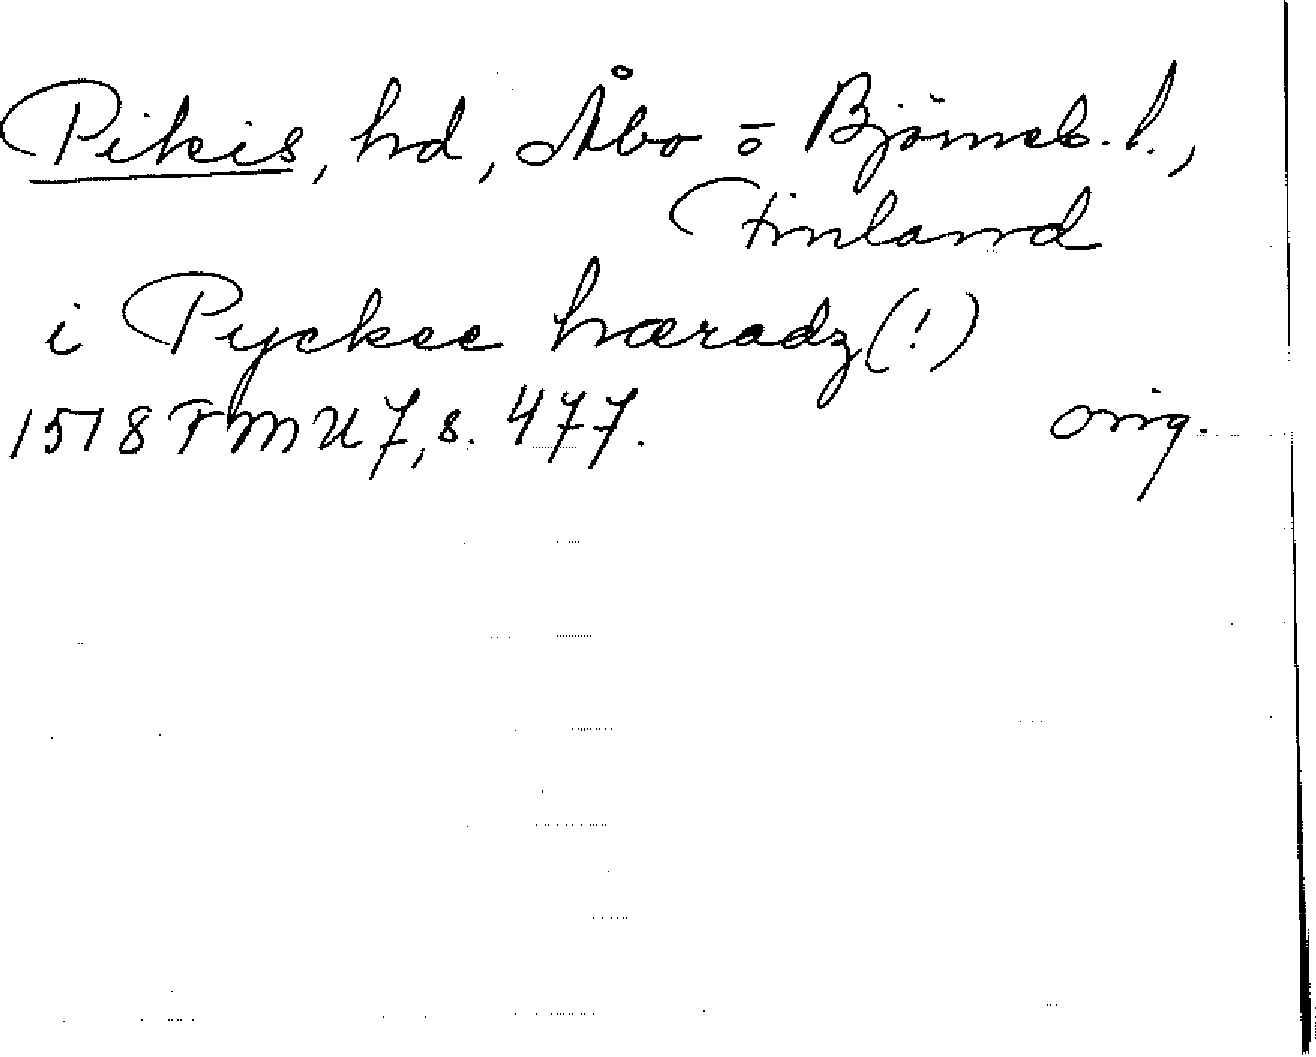 Pikis, hd, Åbo o̅ Björneb. l.,
Finland
i Pyckee hæradz (!)
1518 FMU 7, s. 477. orig.